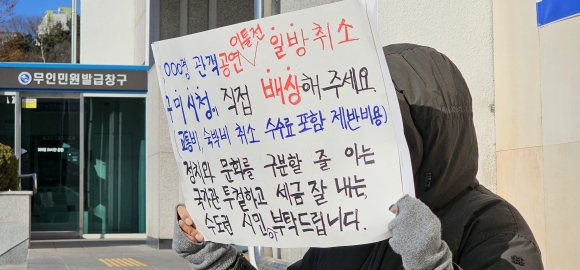 무인민원발급창구
이틀전
000명 관객 공연 ∨ 일방취소
구미시청이 직접 배상해 주세요.
(교통비, 숙박비 취소 수수료 포함 제반비용)
정치와 문화를 구분할 줄 아는
국가관 투철하고 세금 잘 내는,
수도권 시민이 부탁드립니다.